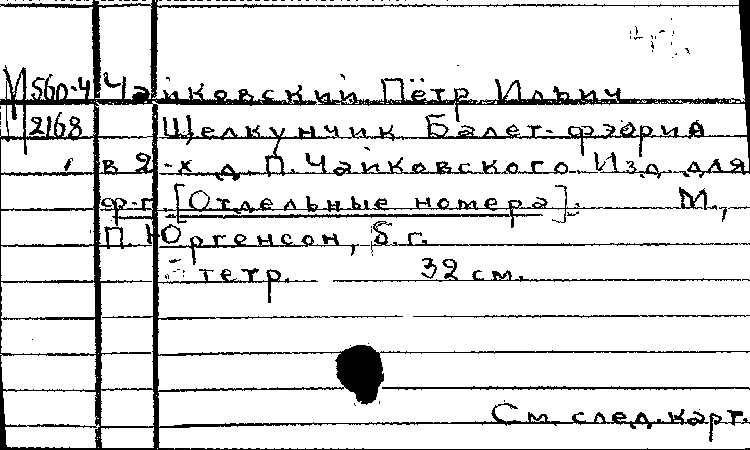 М 560-4 Чайковский Пётр Ильич
2168 Щелкунчик Балет-феерия
в 2-х д. П. Чайковского. Изд. для
ф-п. [Отдельные номера]. М.,
П. Юргенсон, б. г.
тетр. 32 см.
См. след. карт.